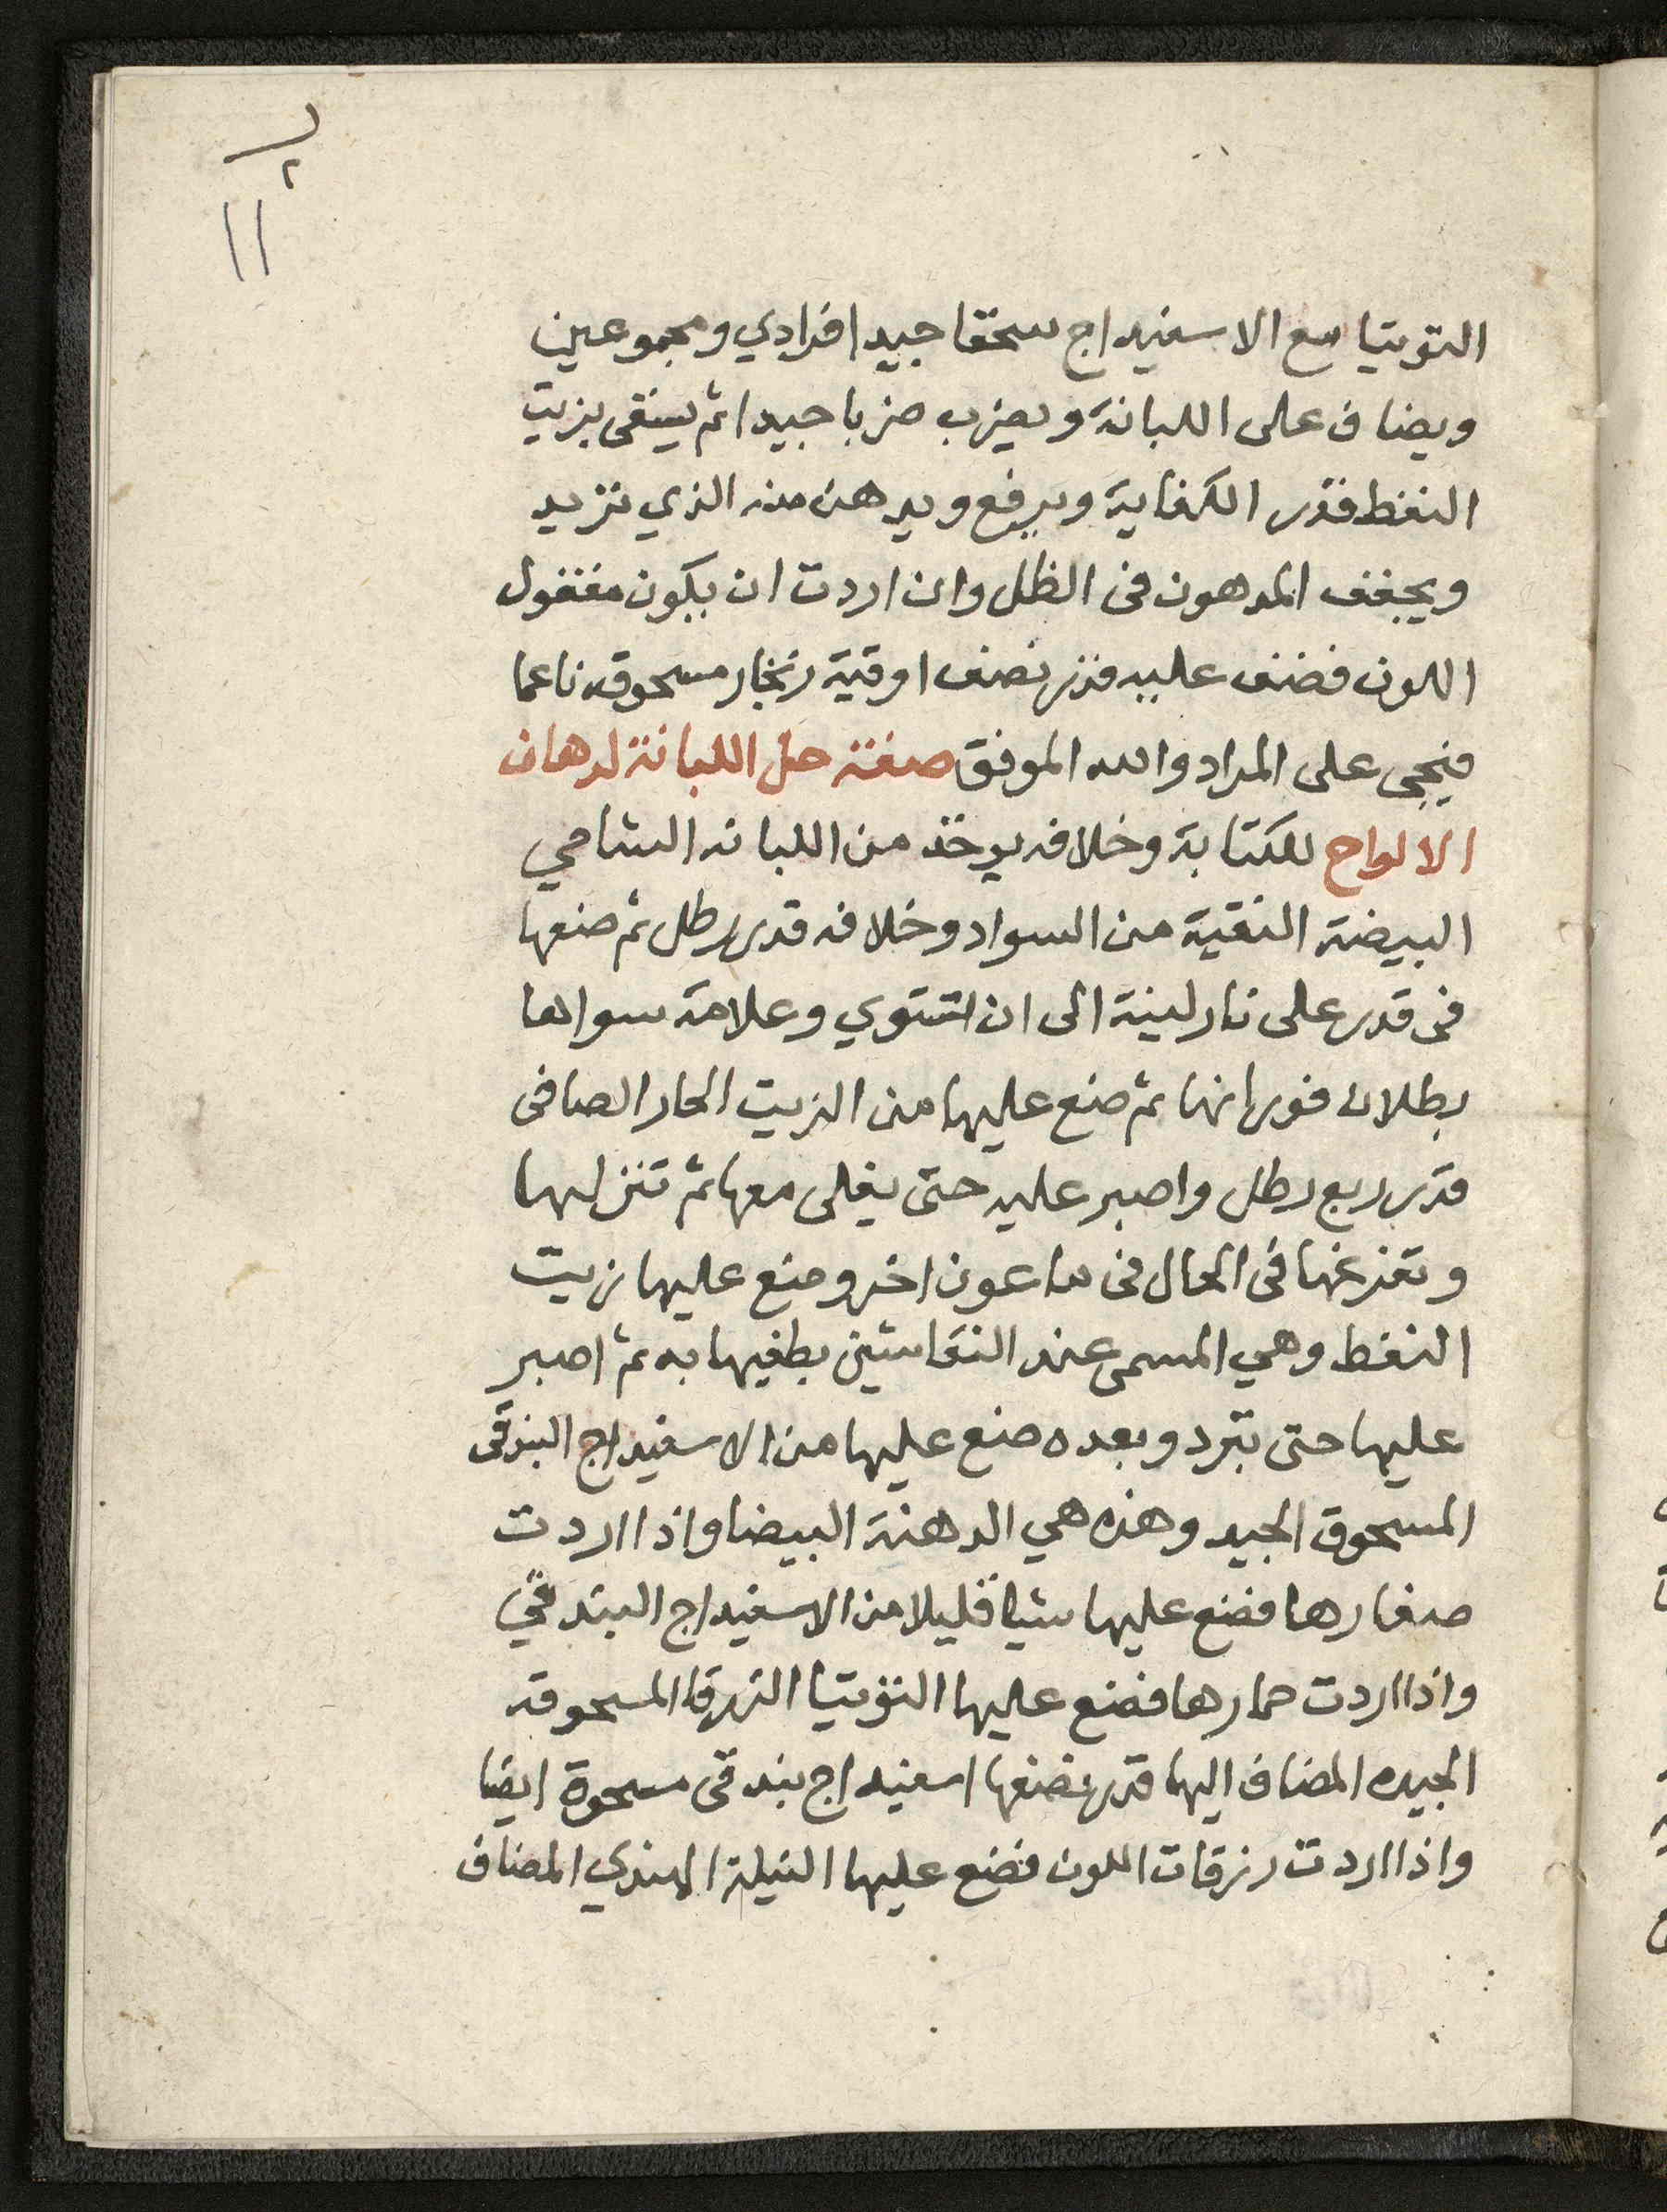 ١١
التوتيا مع الاسفيداج سحقا جيدا فرادي ومجموعين
ويضاف على اللبانة ويضرب ضربا جيدا ثم يسقى بزيت
النفط قدر الكفاية ويرفع ويدهن منه الذي تريد
ويجفف المدهون فى الظل وان اردت ان يكون مغفول
اللون فضف عليه قدر نصف اوقية زنجار مسحوقه ناعما
فيجى على المراد والله الموفق صفة حل اللبانة لدهان
الالواح للكتابة وخلافه يوخذ من اللبانه الشامي
البيضة النقية من السواد وخلافه قدر رطل ثم ضعها
فى قدر على نار لينة الى ان تستوي وعلامة سواها
بطلان فورانها ثم ضع عليها من الزيت الحار الصافى
قدر ربع رطل واصبر عليه حتى يغلى معها ثم تنزلها
وتفرغها فى الحال فى ماعون اخر وضع عليها زيت
النفط وهي المسمى عند النقاشين يطفيها به ثم اصبر
عليها حتى تبرد وبعده ضع عليها من الاسفيداج البندقى
المسحوق الجيد وهذه هي الدهنة البيضا واذا اردت
صفارها فضع عليها شيا قليلا من الاسفيداج البندقي
واذا اردت حمارها فضع عليها التوتيا الزرقا المسحوقه
الجيده المضاف اليها قدر نصفها اسفيداج بندقى مسحوق ايضا
واذا اردت زرقات اللون فضع عليها النيلة الهندي المضاف